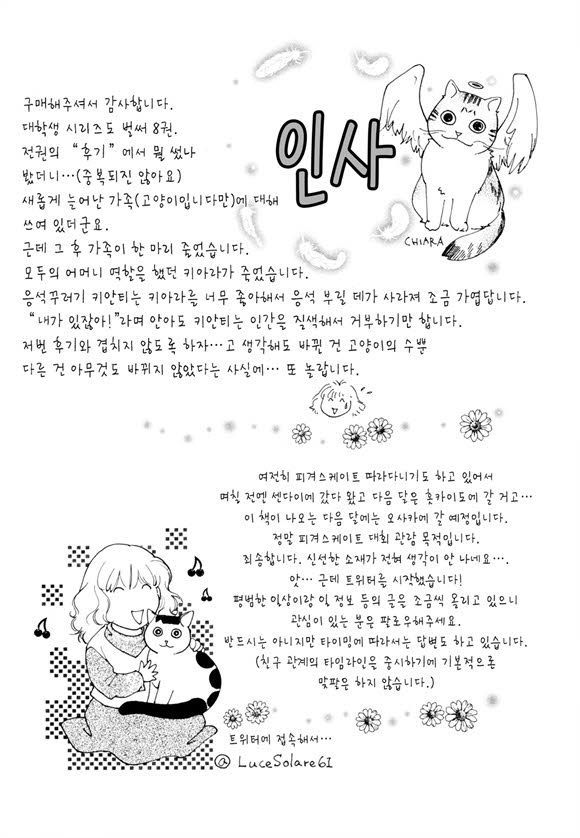 인사
구매해주셔서 감사합니다.
대학생 시리즈도 벌써 8권.
전권의 “후기”에서 뭘 썼나
봤더니…(중복되진 않아요)
새롭게 늘어난 가족(고양이입니다만)에 대해
쓰여 있더군요.
근데 그 후 가족이 한 마리 줄었습니다.
모두의 어머니 역할을 했던 키아라가 죽었습니다.
응석꾸러기 키안티는 키아라를 너무 좋아해서 응석 부릴 데가 사라져 조금 가엽답니다.
“내가 있잖아!”라며 안아도 키안티는 인간을 질색해서 거부하기만 합니다.
저번 후기와 겹치지 않도록 하자…고 생각해도 바뀐 건 고양이의 수뿐
다른 건 아무것도 바뀌지 않았다는 사실에… 또 놀랍니다.
CHIARA
여전히 피겨스케이트 따라다니기도 하고 있어서
며칠 전엔 센다이에 갔다 왔고 다음 달은 홋카이도에 갈 거고…
이 책이 나오는 다음 달에는 오사카에 갈 예정입니다.
정말 피겨스케이트 대회 관람 목적입니다.
죄송합니다. 신선한 소재가 전혀 생각이 안 나네요….
앗… 근데 트위터를 시작했습니다!
평범한 일상이랑 일 정보 등의 글은 조금씩 올리고 있으니
관심이 있는 분은 팔로우해주세요.
반드시는 아니지만 타이밍에 따라서는 답변도 하고 있습니다.
(친구 관계의 타임라인을 중시하기에 기본적으론
맞팔은 하지 않습니다.)
트위터에 접속해서…
@ LuceSolare61